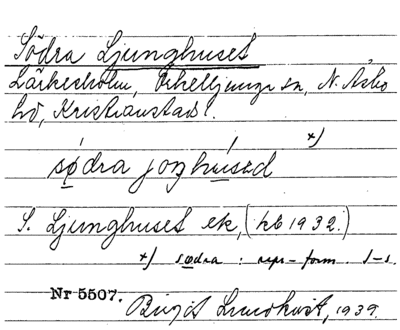 Södra Ljunghuset
Lärkesholm, Örkelljunga sn, N. Åsbo
hd, Kristianstads l.
x)
södra joŋhúsəd
S. Ljunghuset ek, (kb 1932.)
x) södra : repr-form. s-s.
Nr 5507.
Birgit Lundkvist, 1939.